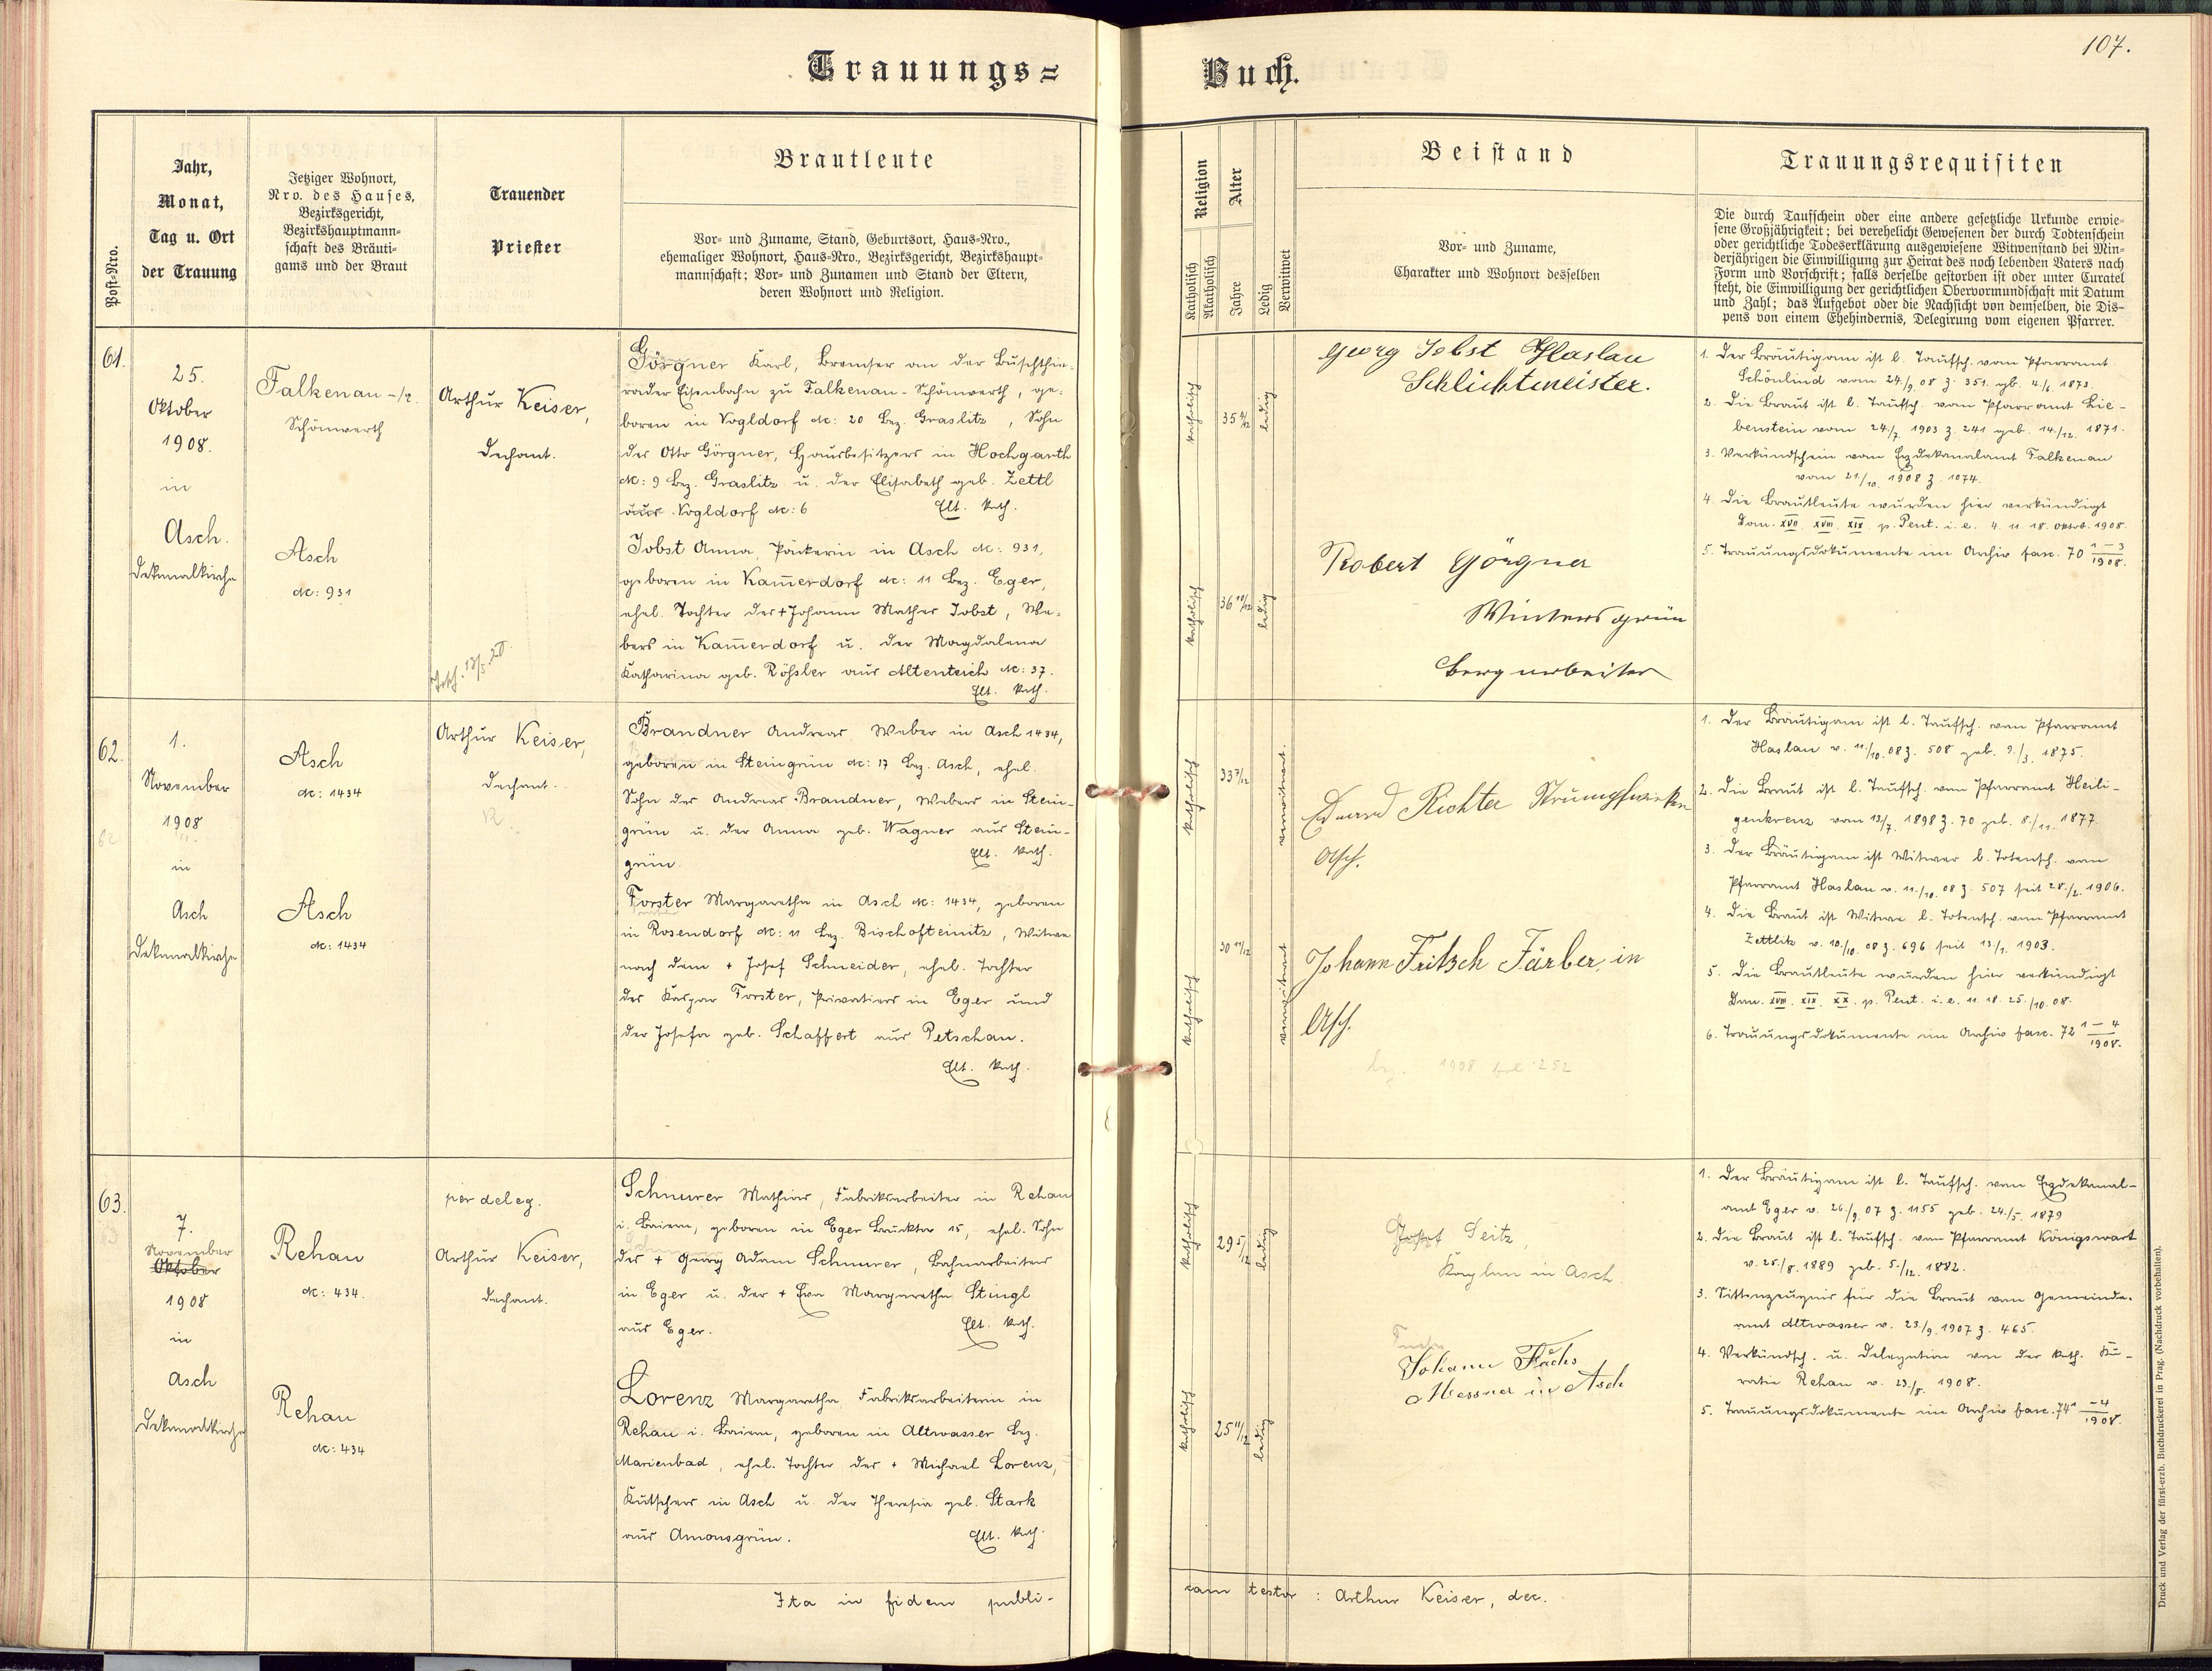 Trauungs=
Buch.
107.
Post-Nro.
Jahr,
Monat,
Tag u. Ort
der Trauung
Jetziger Wohnort,
Nro. des Hauses,
Bezirksgericht,
Bezirkshauptmann-
schaft des Bräuti-
gams und der Braut
Trauender
Priester
Brautleute
Vor- und Zuname, Stand, Geburtsort, Haus-Nro.,
ehemaliger Wohnort, Haus-Nro., Bezirksgericht, Bezirkshaupt-
mannschaft; Vor- und Zunamen und Stand der Eltern,
deren Wohnort und Religion.
Religion
Katholisch
Akatholisch
Alter
Jahre
Ledig
Verwitwet
Beistand
Vor- und Zuname,
Charakter und Wohnort desselben
Trauungsrequisiten
Die durch Taufschein oder eine andere gesetzliche Urkunde erwie-
sene Großjährigkeit; bei verehelicht Gewesenen der durch Todtenschein
oder gerichtliche Todeserklärung ausgewiesene Witwenstand bei Min-
derjährigen die Einwilligung zur Heirat des noch lebenden Vaters nach
Form und Vorschrift; falls derselbe gestorben ist oder unter Curatel
steht, die Einwilligung der gerichtlichen Obervormundschaft mit Datum
und Zahl; das Aufgebot oder die Nachsicht von demselben, die Dis-
pens von einem Ehehindernis, Delegirung vom eigenen Pfarrer.
61.
25.
Oktober
1908.
in
Asch.
Dekanalkirche
Falkenau
Schönwerth
Asch
Nc: 931
Arthur Keiser,
Dechant.
Görgner Karl, Bremser an der Buschtĕh-
rader Eisenbahn zu Falkenau-Schönwerth, ge-
boren in Vogldorf Nc: 20 Bez. Graslitz, Sohn
des Otto Görgner, Hausbesitzers in Hochgarth
Nc: 9 Bez. Graslitz u. der Elisabeth geb. Zettl
aus Vogldorf Nc: 6 Elt. kath.
Jobst Anna, Päckerin in Asch Nc: 931,
geboren in Kam̅erdorf Nc: 11 Bez. Eger,
ehel. Tochter des + Johann Mathes Jobst, We-
bers in Kam̅erdorf u. der Magdalena
Katharina geb. Rößler aus Altenteich Nc: 37.
Elt. kath.
katholisch
35 4/12
ledig
katholisch
36 10/12
ledig
Georg Jobst Haslau
Schlichtmeister.
Robert Görgner
Wintersgrün
Bergarbeiter
1. Der Bräutigam ist l. Taufsch. vom Pfarramt
Schönlind vom 24./9. 08 Z. 351. gb. 4./6. 1873
2. Die Braut ist l. Taufsch. vom Pfarramt Lie-
benstein vom 24./7. 1903 Z. 241 geb. 14./12. 1871.
3. Verkündschein vom Erzdekanalamt Falkenau
vom 21/10. 1908 Z. 1074.
4. Die Brautleute wurden hier verkündigt
Dom. XVII XVIII XIX p. Pent. i. e. 4. 11 18. Oktob. 1908.
5. Trauungsdokumente im Archiv fasc. 70 1–3/1908.
62.
1.
November
1908
in
Asch
Dekanalkirche
Asch
Nc: 1434
Asch
Nc: 1434
Arthur Keiser,
Dechant.
Brandner Andreas, Weber in Asch 1434,
geboren in Steingrün Nc: 17 Bez. Asch, ehel.
Sohn des Andreas Brandner, Webers in Stein-
grün u. der Anna geb. Wagner aus Stein-
grün. Elt. kath.
Forster Margaretha in Asch Nc: 1434, geboren
in Rosendorf Nc: 11 Bez. Bischofteinitz, Witwe
nach dem + Josef Schneider, ehel. Tochter
des Kaspar Forster, Privatiers in Eger und
der Josefa geb. Schaffert aus Petschau.
Elt. kath.
katholisch
33 7/12
verwitwet.
katholisch
30 11/12
verwitwet
Eduard Richter Strumpfwirker
Asch.
Johann Fritsch Färber in
Asch.
1908 fol 252
1. Der Bräutigam ist l. Taufsch. vom Pfarramt
Haslau v. 11./10. 08 Z. 508 geb. 9./3. 1875.
2. Die Braut ist l. Taufsch. vom Pfarramt Heili-
genkreuz vom 13/7. 1898 Z. 70 geb. 8./11. 1877
3. Der Bräutigam ist Witwer l. Totensch. vom
Pfarramt Haslau v. 11./10. 08 Z. 507 seit 28./2. 1906.
4. Die Braut ist Witwe l. Totensch. vom Pfarramt
Zettlitz v. 10./10. 08 Z. 696 seit 13./1. 1903.
5. Die Brautleute wurden hier verkündigt
Dom. XVIII. XIX. XX. p. Pent. i. e. 11. 18. 25./10. 08.
6. Trauungsdokumente im Archiv fasc. 72 1–4/1908.
63.
7.
November
Oktober
1908
in
Asch
Dekanalkirche
Rehau
Nc: 434.
Rehau
Nc: 434
per deleg.
Arthur Keiser,
Dechant.
Schnurer Mathias, Fabriksarbeiter in Rehau
i. Baiern, geboren in Eger Brucktor 15, ehel. Sohn
des + Georg Adam Schnurer, Bahnarbeiters
in Eger u. der + Eva Margaretha Stingl
aus Eger. Elt. kath.
Lorenz Margaretha, Fabriksarbeiterin in
Rehau i. Baiern, geboren in Altwasser Bez.
Marienbad, ehel. Tochter des + Michael Lorenz,
Kutschers in Asch u. der Theresia geb. Stark
aus Amonsgrün. Elt. kath.
katholisch
29 5/12
ledig
katholisch
25 11/12
ledig
Josef Seitz
Kaplan in Asch
Johann Fuchs
Messner in Asch
1. Der Bräutigam ist l. Taufsch. vom Erzdekanal-
amt Eger v. 26./9. 07 Z. 1155 geb. 24./5. 1879
2. Die Braut ist l. Taufsch. vom Pfarramt Königswart
v. 25./8. 1889 geb. 5./12. 1882.
3. Sittenzeugnis für die Braut vom Gemeinde-
amt Altwasser v. 23./9. 1907 Z. 465.
4. Verkündsch. u. Delegation von der kath. Ku-
ratie Rehau v. 1908.
5. Trauungsdokumente im Archiv fasc. 74 1–4/1908.
Ita in fidem publi-
cam testor : Arthur Keiser, dec.
Druck und Verlag der fürst-erzb. Buchdruckerei in Prag. (Nachdruck vorbehalten).